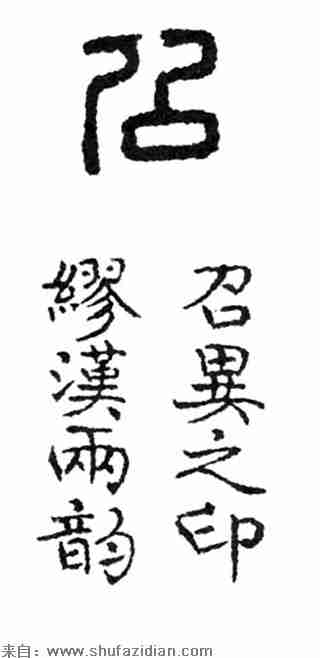 召
召異之印
繆漢兩韵
来自：www.shufazidian.com